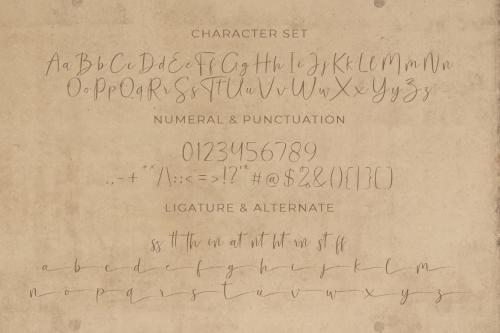 CHARACTER SET
Aa Bb Cc Dd Ee Ff Gg Hh Ii Jj Kk Ll Mm Nn
Oo Pp Qq Rr Ss Tt Uu Vv Ww Xx Yy Zz
NUMERAL & PUNCTUATION
0123456789
.,-+"*/\:;<=>!?'"#@$&(){|}[]
LIGATURE & ALTERNATE
ss tt th on at nt ht st ff
a b c d e f g h i j k l m
n o p q r s t u v w x y z